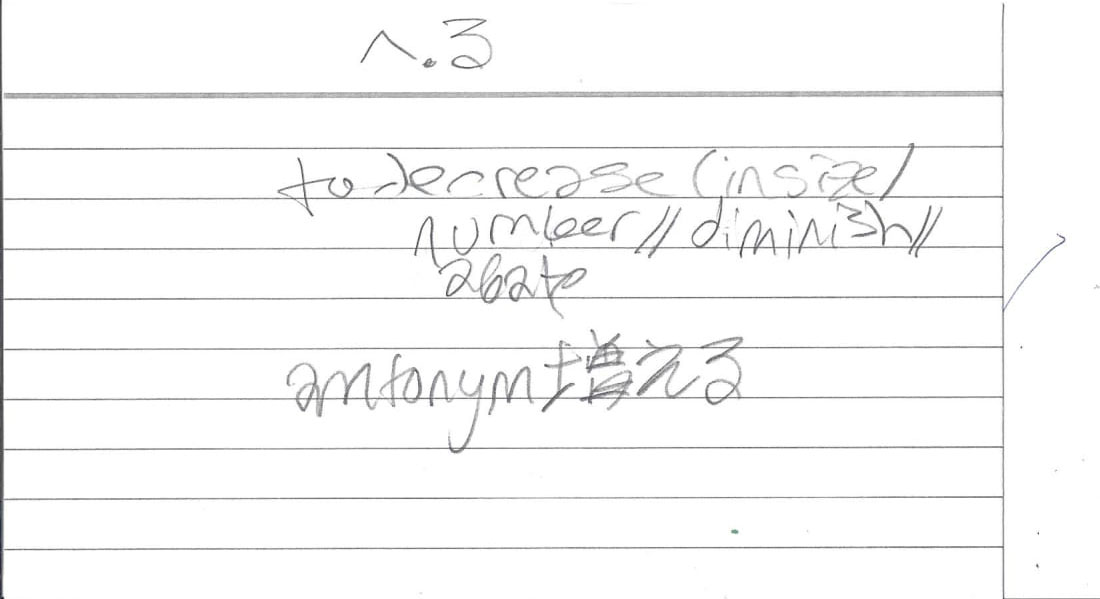 へ.る
to decrease (in size/
number// diminish//
abate
antonym 増える